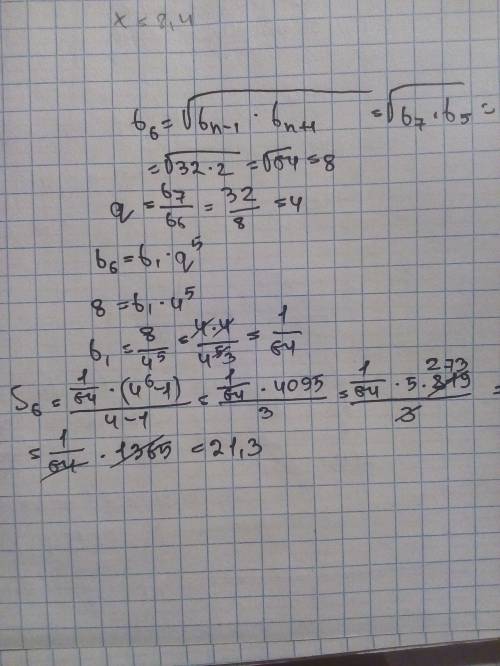 x = 8,4
b₆ = √(bₙ₋₁ · bₙ₊₁) = √(b₇ · b₅) =
= √(32 · 2) = √64 = 8
q = b₇/b₆ = 32/8 = 4
b₆ = b₁ · q⁵
8 = b₁ · 4⁵
b₁ = 8/4⁵ = 4·4/4⁵ 3 = 1/64
S₆ = (1/64 · (4⁶ - 1))/(4 - 1) = (1/64 · 4095)/3 = (1/64 · 5 · 819 273)/3 =
= 1/64 · 1365 = 21,3